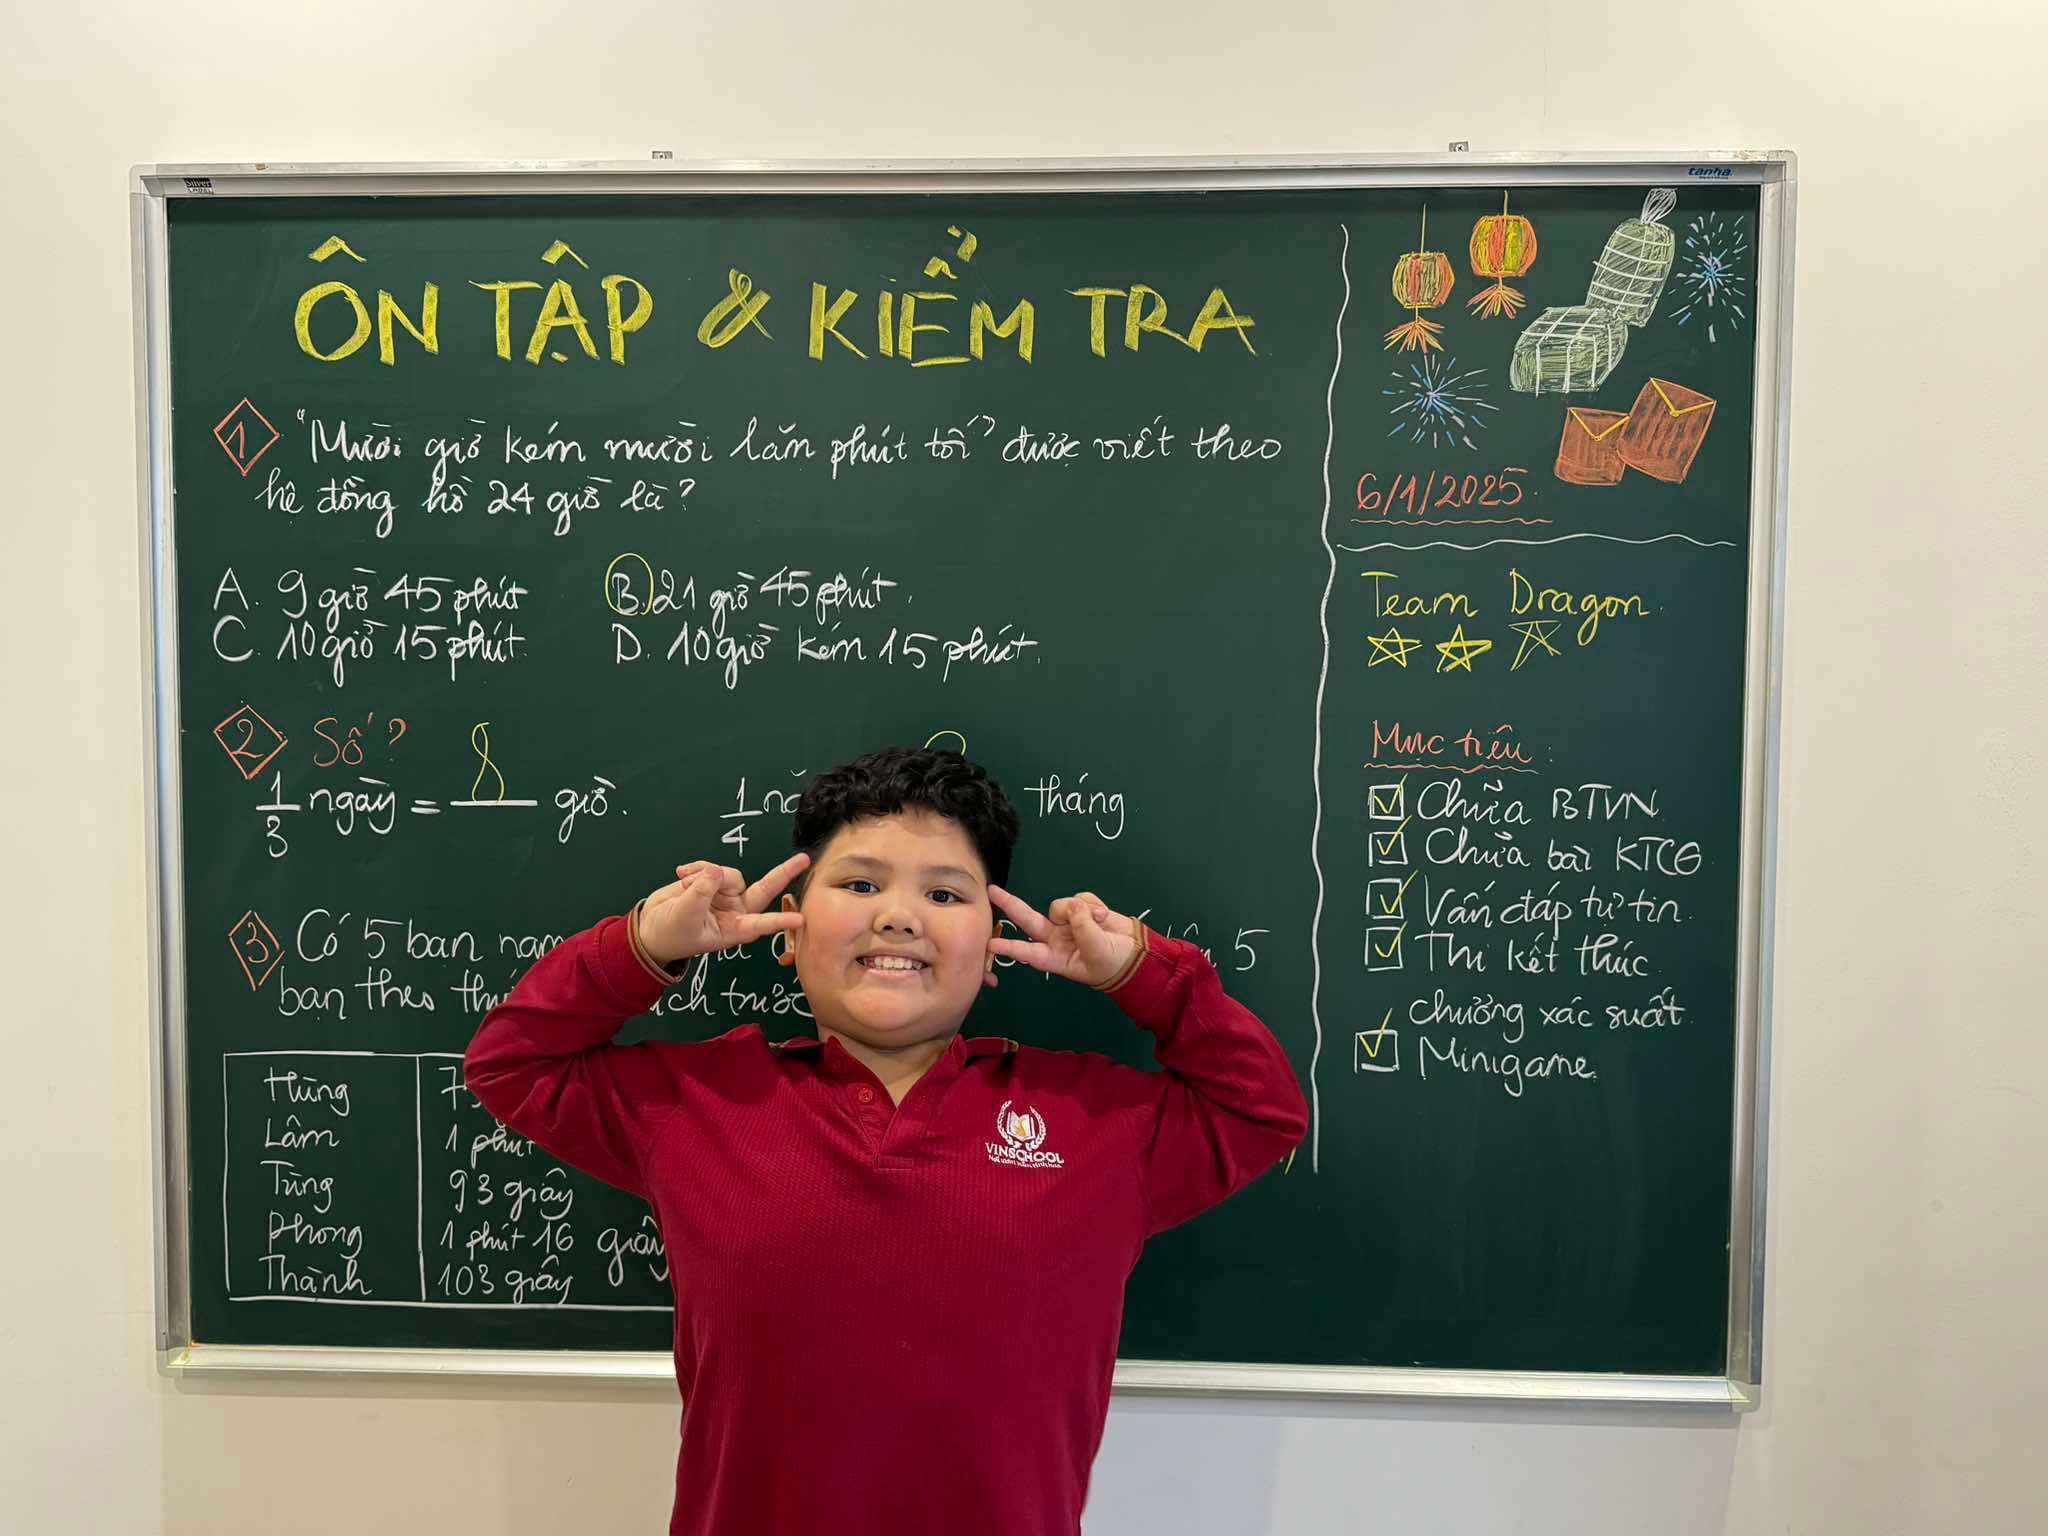 Silver
LABEL
tanha
ÔN TẬP & KIỂM TRA
1 "Mười giờ kém mười lăm phút tối" được viết theo
hệ đồng hồ 24 giờ là?
A. 9 giờ 45 phút B. 21 giờ 45 phút.
C. 10 giờ 15 phút. D. 10 giờ kém 15 phút.
2 Số?
1/3 ngày = 8 giờ. 1/4 tháng
3 Có 5 bạn nam 5
bạn theo
Hùng
Lâm 1 phút
Tùng 93 giây
Phong 1 phút 16 giây
Thành 103 giây
6/1/2025.
Team Dragon.
Mục tiêu:
Chữa BTVN
Chữa bài KTCG
Vấn đáp tự tin.
Thi kết thúc
chương xác suất.
Minigame.
VINSCHOOL